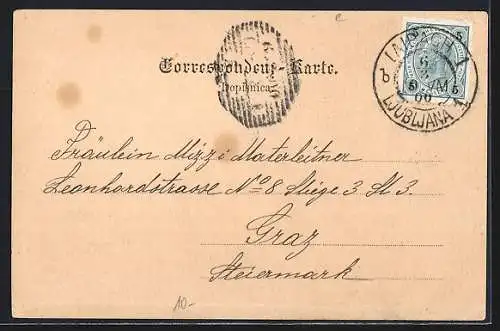 Correspondenz-Karte.
Dopisnica.
5
5 5
LAIBACH 1
6
3
00
LJUBLJANA 1
Fräulein Mizzi Materleitner
Leonhardstrasse No 8 Stiege 3 St 3.
Graz
Steiermark
10-